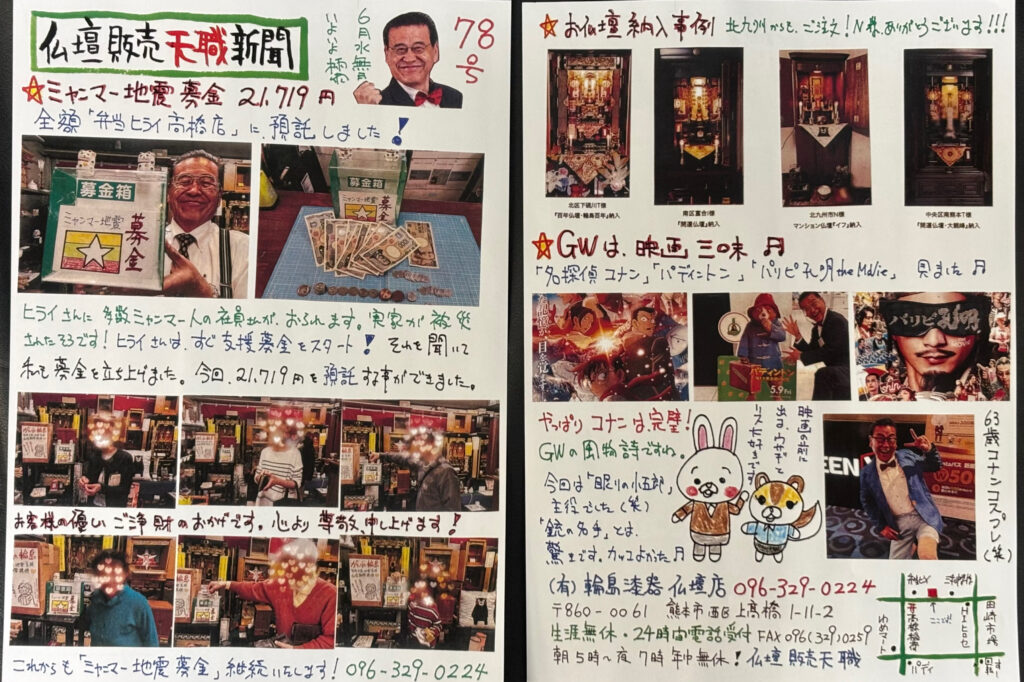 仏壇販売天職新聞
6月水無月
いよいよ梅雨
78号
☆ミャンマー地震募金 21,719円
全額「弁当ヒライ高橋店」に、預託しました!
募金箱
ミャンマー地震
募金
募金箱
ミャンマー地震
募金
ヒライさんに多数ミャンマー人の社員さんが、おられます。実家が被災
されたそうです!ヒライさんは、すぐ支援募金をスタート! それを聞いて
私も募金を立ち上げました。今回、21,719円を預託する事ができました。
お客様の優しいご浄財のおかげです。心より尊敬申し上げます!
これからも「ミャンマー地震募金」継続いたします! 096-329-0224
☆お仏壇納入事例 北九州からも、ご注文!N様、ありがとうございます!!!
北区下硯川T様
『百年仏壇・輪島百年』納入
南区富合I様
『開運仏壇』納入
北九州市N様
マンション仏壇『イフ』納入
中央区南熊本T様
『開運仏壇・大観峰』納入
☆GWは、映画三昧♬
「名探偵コナン」「パディントン」「パリピ孔明 the Movie」 見ました♬
パディントン
5.9 Fri
パリピ孔明
やっぱりコナンは完璧!
GWの風物詩ですね。
今回は「眠りの小五郎」
主役でした(笑)
「銃の名手」とは、
驚きです。カッコよかった♬
映画の前に
出る、ウサギと
リス大好きです
63歳コナンコスプレ(笑)
(有)輪島漆器仏壇店 096-329-0224
〒860-0061 熊本市西区上高橋1-11-2
生涯無休・24時間電話受付 FAX 096(329)0259
朝5時〜夜7時 年中無休! 仏壇販売天職
ここだよ!
田崎市場
ゆめマート